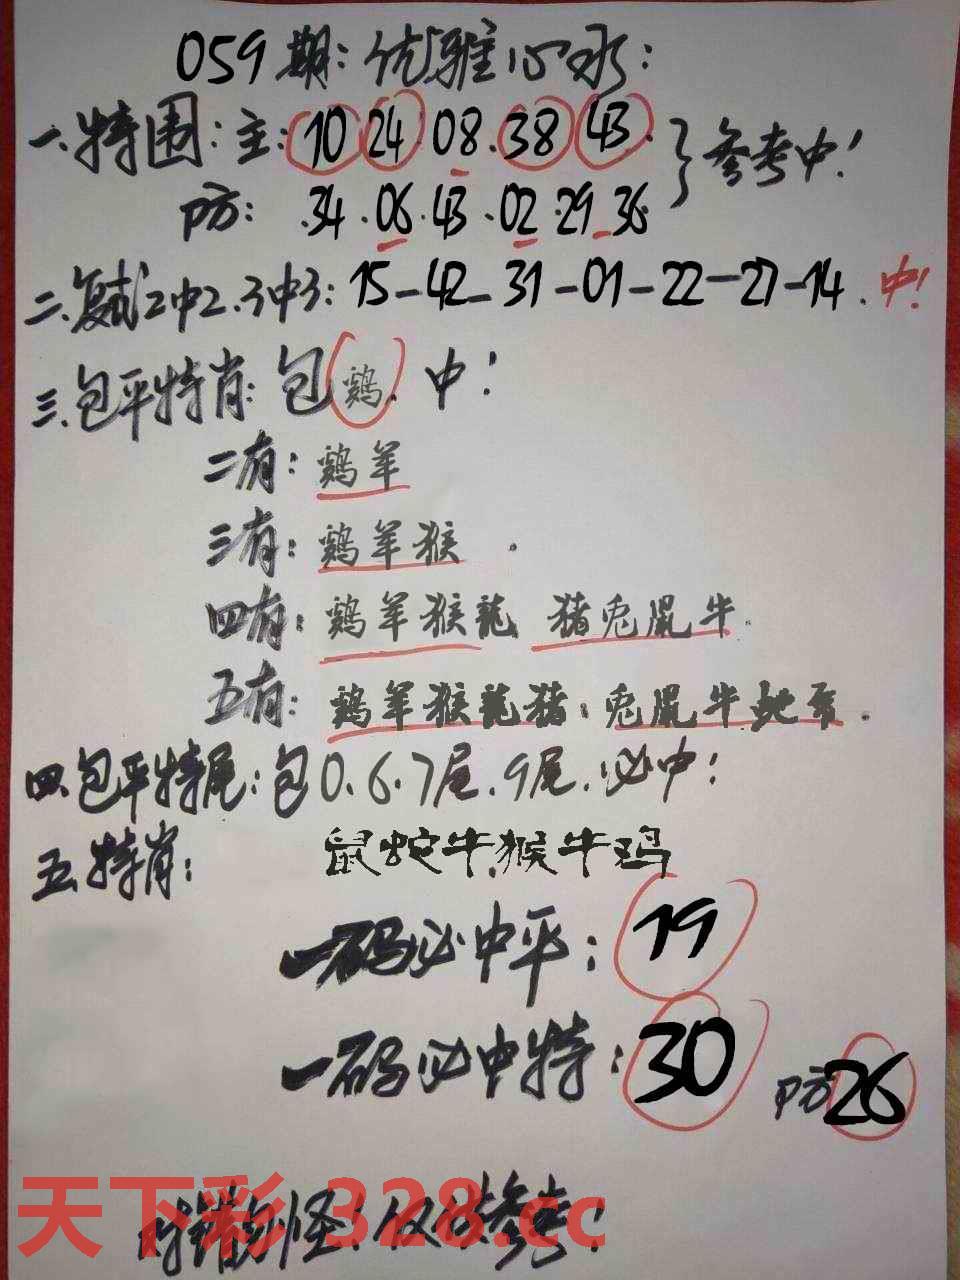 059期:优雅心水:
一.特围:主:10 24 08.38 43. 参考中!
防: .34.06.43.02.29.36.
二.复式2中2.3中3: 15-42-31-01-22-27-14.中!
三.包平特肖: 包鸡.中!
二有: 鸡羊
三有: 鸡羊猴.
四有: 鸡羊猴龍 猪兔鼠牛.
五有: 鸡羊猴龍猪:兔鼠牛蛇.
四.包平特尾:包0.6.7尾.9尾.必中!
五.特肖: 鼠蛇牛.猴牛鸡
一码必中平: 19
一码必中特: 30 防26
对错勿怪!仅供参考!
天下彩 328.cc